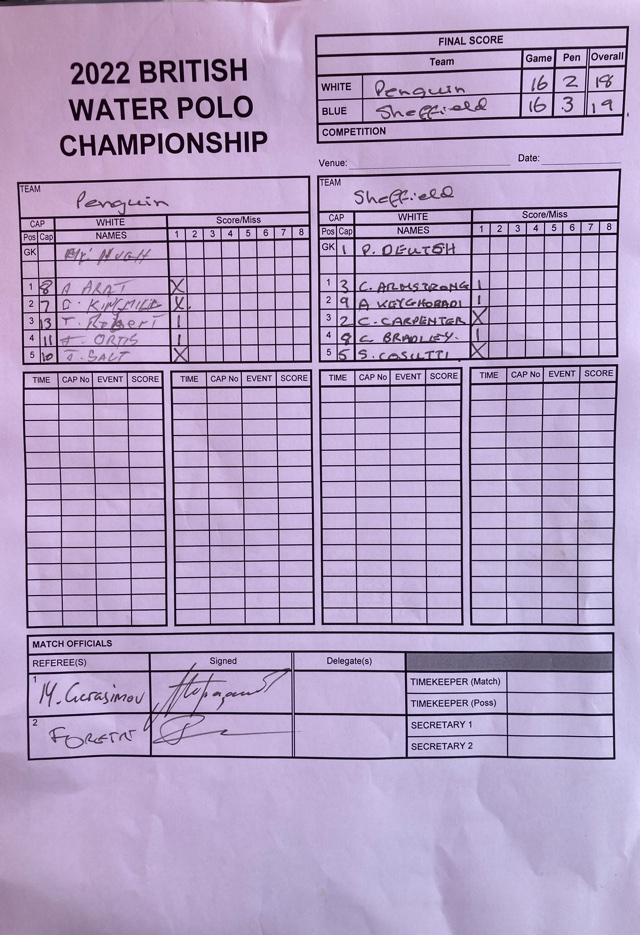 2022 BRITISH
WATER POLO
CHAMPIONSHIP
FINAL SCORE
Team Game Pen Overall
WHITE Penguin 16 2 18
BLUE Sheffield 16 3 19
COMPETITION
Venue: Date:
TEAM
Penguin
CAP WHITE Score/Miss
Pos Cap NAMES 1 2 3 4 5 6 7 8
GK HUGH
1 8 A ARAT X
2 7 X
3 13 T. Robert 1
4 11 ORTIS 1
5 10 SALT X
TEAM
Sheffield
CAP WHITE Score/Miss
Pos Cap NAMES 1 2 3 4 5 6 7 8
GK 1 P. DEUTSH
1 3 C. ARMSTRONG 1
2 9 A KEYGHOBADI 1
3 2 C. CARPENTER X
4 8 C BRADLEY. 1
5 5 S. COSUTTI. X
TIME CAP No EVENT SCORE
TIME CAP No EVENT SCORE
TIME CAP No EVENT SCORE
TIME CAP No EVENT SCORE
MATCH OFFICIALS
REFEREE(S) Signed Delegate(s)
1 M. Gerasimov
2
TIMEKEEPER (Match)
TIMEKEEPER (Poss)
SECRETARY 1
SECRETARY 2